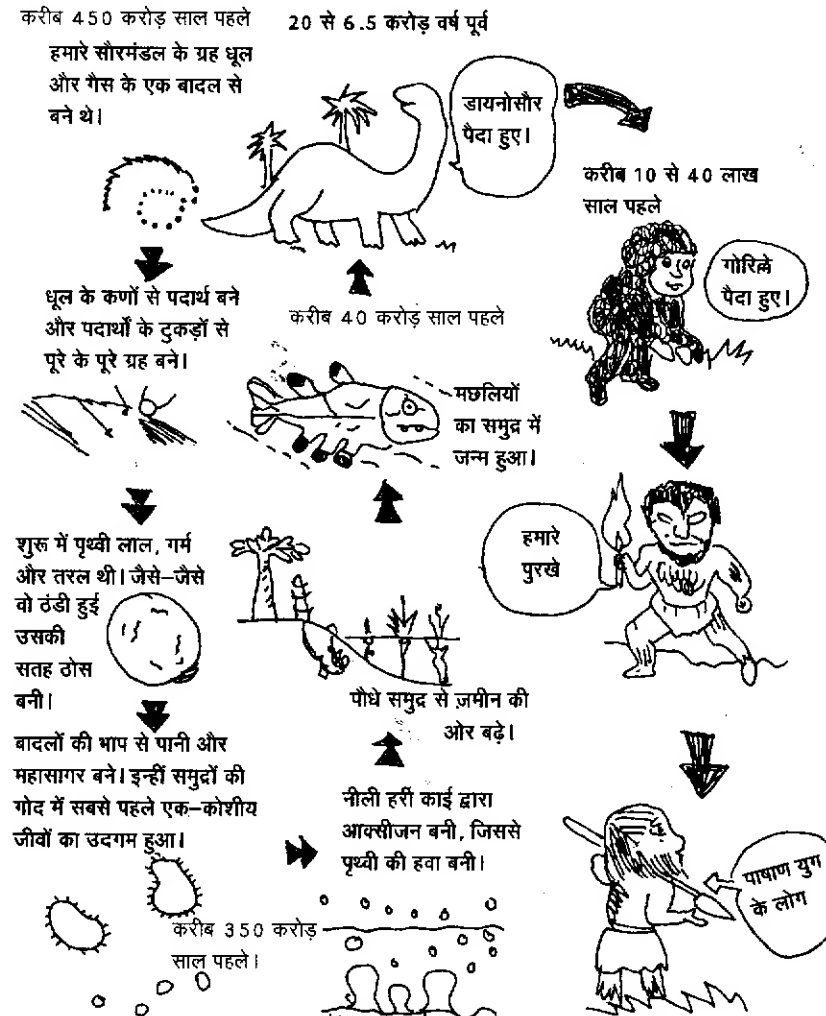 करीब 450 करोड़ साल पहले
हमारे सौरमंडल के ग्रह धूल
और गैस के एक बादल से
बने थे।
धूल के कणों से पदार्थ बने
और पदार्थों के टुकड़ों से
पूरे के पूरे ग्रह बने।
शुरू में पृथ्वी लाल, गर्म
और तरल थी। जैसे–जैसे
वो ठंडी हुई
उसकी
सतह ठोस
बनी।
बादलों की भाप से पानी और
महासागर बने। इन्हीं समुद्रों की
गोद में सबसे पहले एक–कोशीय
जीवों का उदगम हुआ।
करीब 350 करोड़
साल पहले।
नीली हरी काई द्वारा
आक्सीजन बनी, जिससे
पृथ्वी की हवा बनी।
पौधे समुद्र से ज़मीन की
ओर बढ़े।
मछलियों
का समुद्र में
जन्म हुआ।
करीब 40 करोड़ साल पहले
20 से 6.5 करोड़ वर्ष पूर्व
डायनोसौर
पैदा हुए।
करीब 10 से 40 लाख
साल पहले
गोरिल्ले
पैदा हुए।
हमारे
पुरखे
पाषाण युग
के लोग